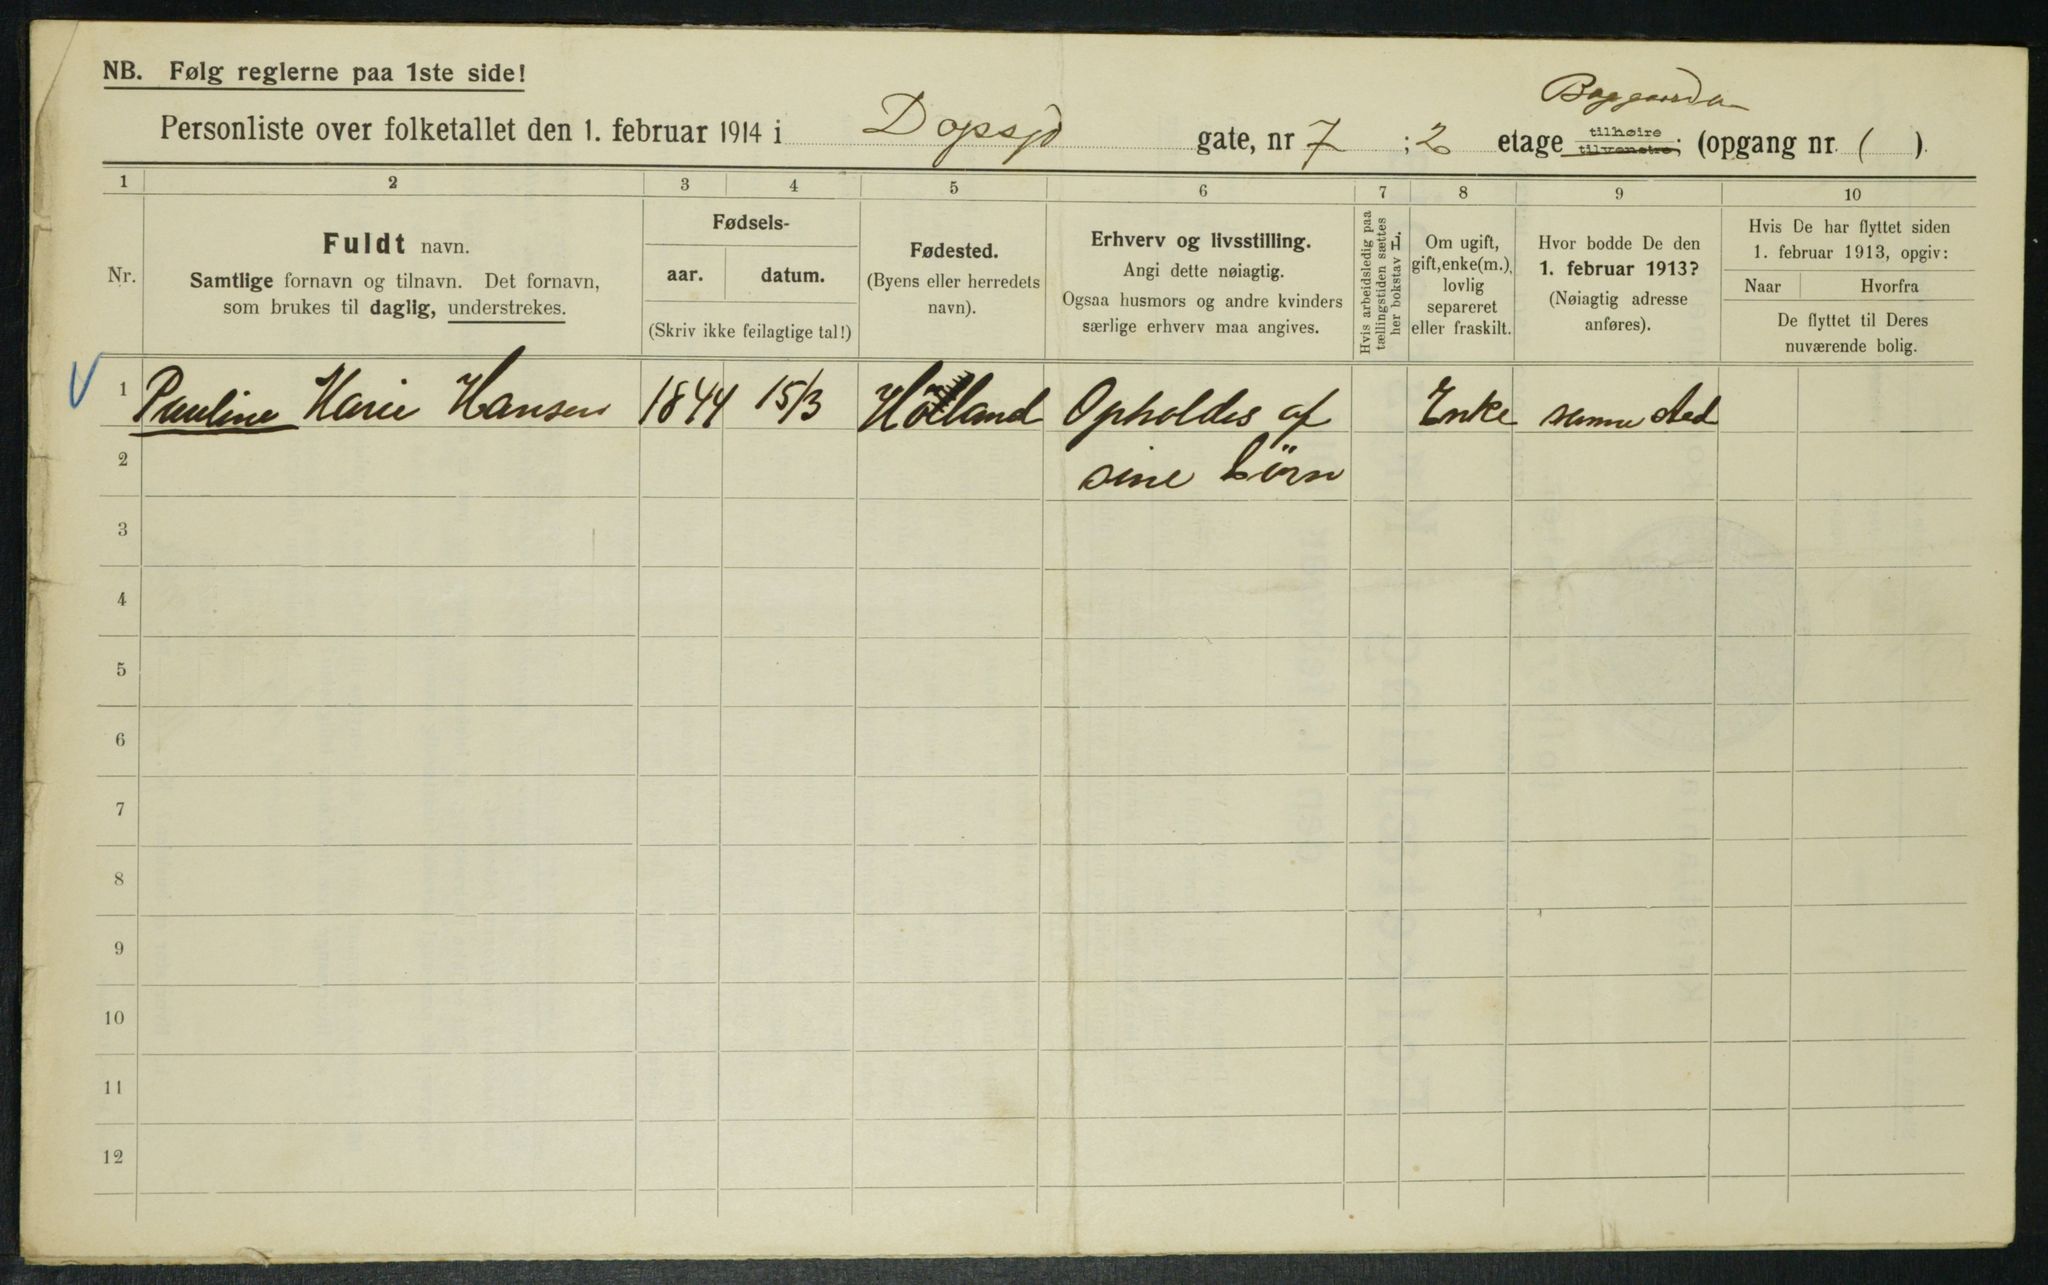 NB. Følg reglerne paa 1ste side!
Baggaarden
Personliste over folketallet den 1. februar 1914 i Dopsgd gate, nr 7 ; 2 etage tilhøire tilvenstre; (opgang nr. ( ).
1 2 3 4 5 6 7 8 9 10
Nr.
Fuldt navn.
Samtlige fornavn og tilnavn. Det fornavn,
som brukes til daglig, understrekes.
Fødsels-
aar. datum.
(Skriv ikke feilagtige tal!)
Fødested.
(Byens eller herredets
navn).
Erhverv og livsstilling.
Angi dette nøiagtig.
Ogsaa husmors og andre kvinders
særlige erhverv maa angives.
Hvis arbeidsledig paa
tællingstiden sættes
her bokstav L.
Om ugift,
gift, enke(m.),
lovlig
separeret
eller fraskilt.
Hvor bodde De den
1. februar 1913?
(Nøiagtig adresse
anføres).
Hvis De har flyttet siden
1. februar 1913, opgiv:
Naar Hvorfra
De flyttet til Deres
nuværende bolig.
1 Pauline Marie Hansen 1844 15/3 Høland Opholdes af Enke samme sted
2 sine börn
3
4
5
6
7
8
9
10
11
12